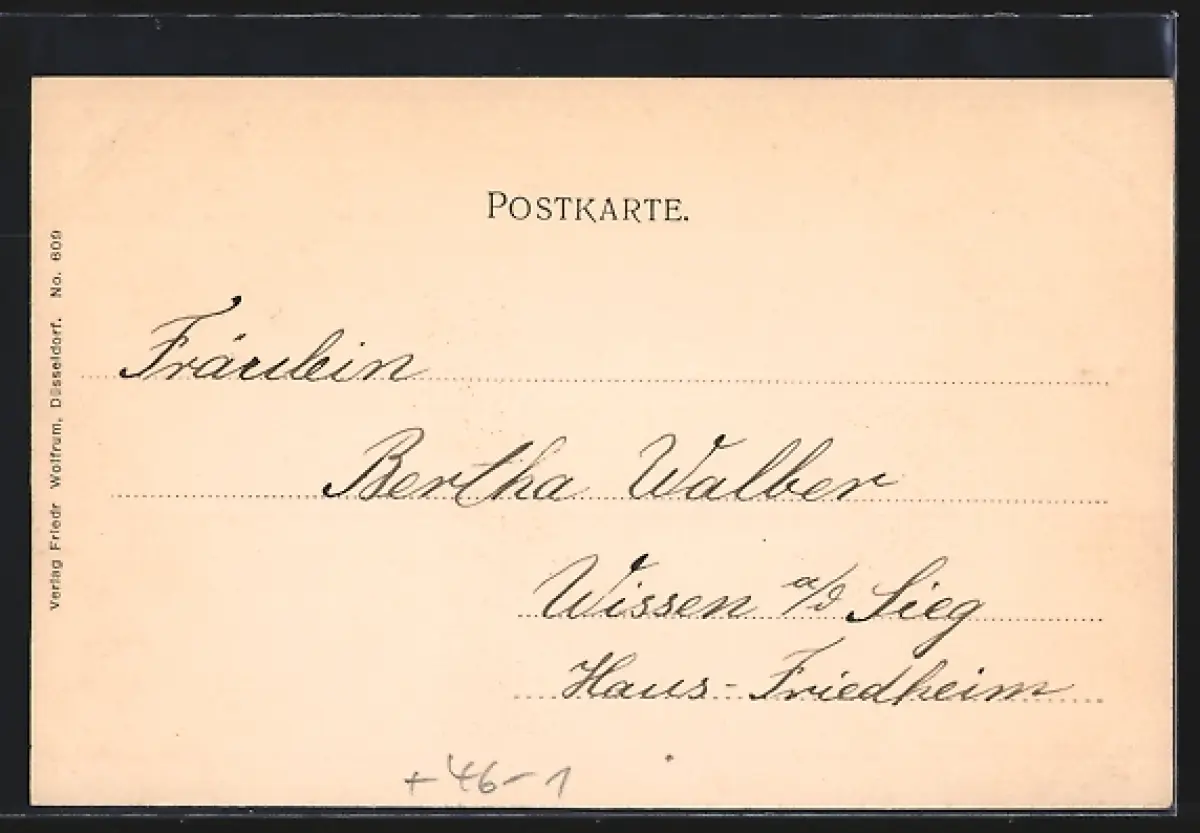 POSTKARTE.
Fräulein
Bertha Walber
Wissen a/d Sieg
Haus-Friedheim
+ 46-1
Verlag Friedr Wolfrum, Düsseldorf. No. 609